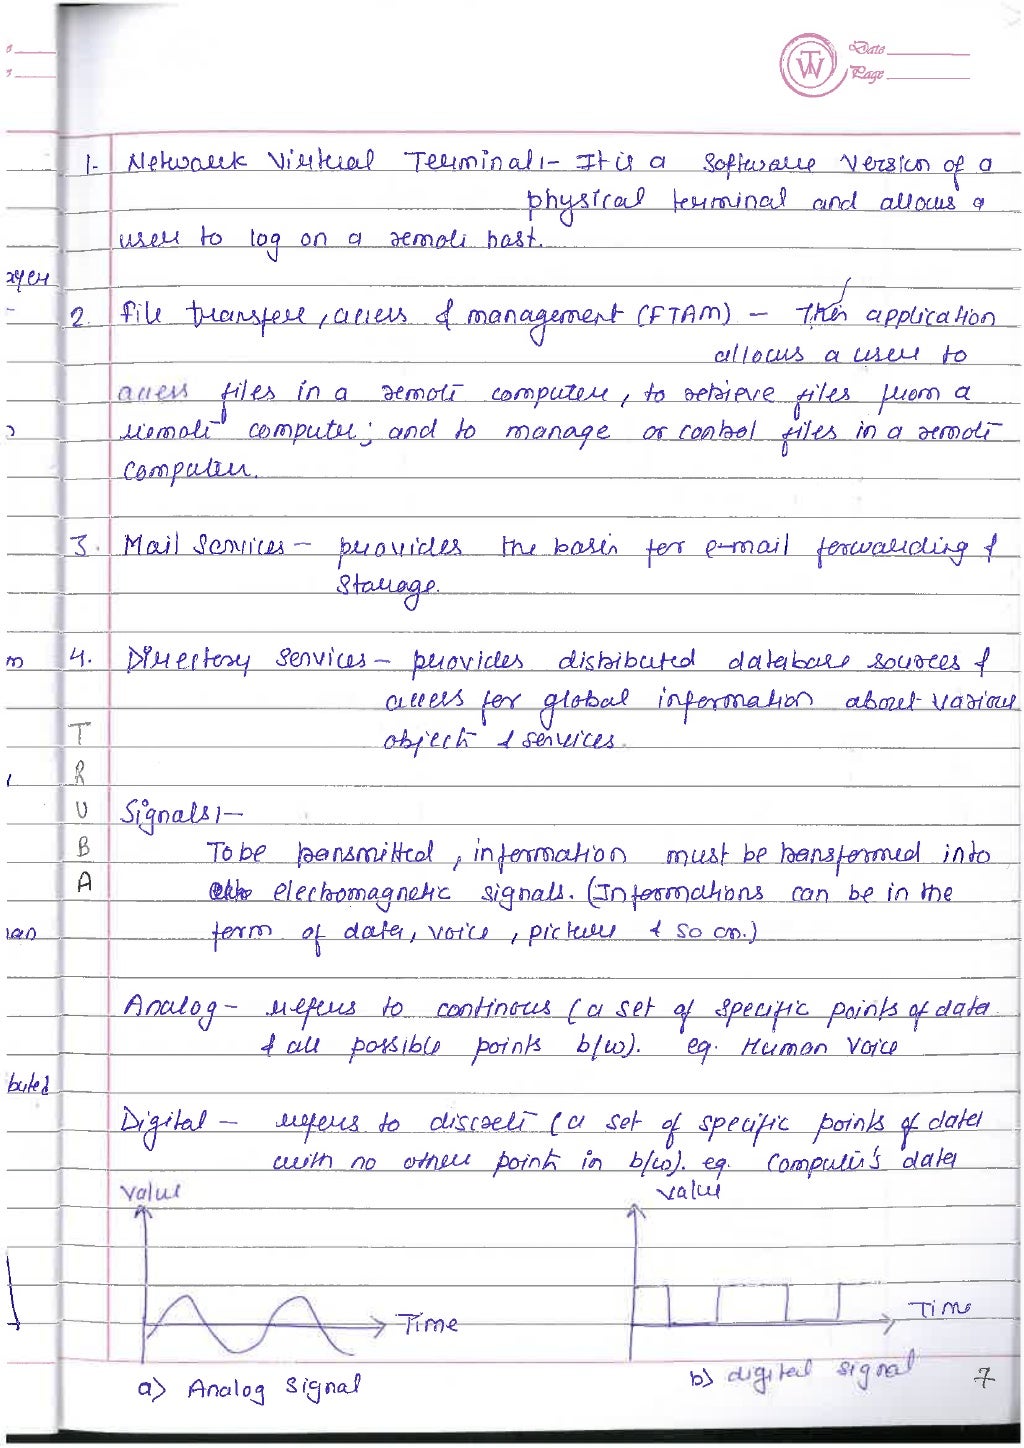 Date
Page
1. Network Virtual Terminal:- It is a software version of a
physical terminal and allows a
user to log on a remote host.
2. File transfer, access & management (FTAM) - This application
allows a user to
access files in a remote computer, to retrieve files from a
remote computer; and to manage or control files in a remote
computer.
3. Mail Services - provides the basis for e-mail forwarding &
storage.
4. Directory Services - provides distributed database sources &
access for global information about various
objects & services.
T
R
U
B
A
Signals:-
To be transmitted, information must be transformed into
electromagnetic signals. (Informations can be in the
form of data, voice, picture & so on.)
Analog - refers to continous (a set of specific points of data
& all possible points b/w). eg. Human Voice
Digital - refers to discrete (a set of specific points of data
with no other points in b/w). eg. Computer's data
Value
Value
Time
Time
a) Analog Signal
b) digital signal
7
buted